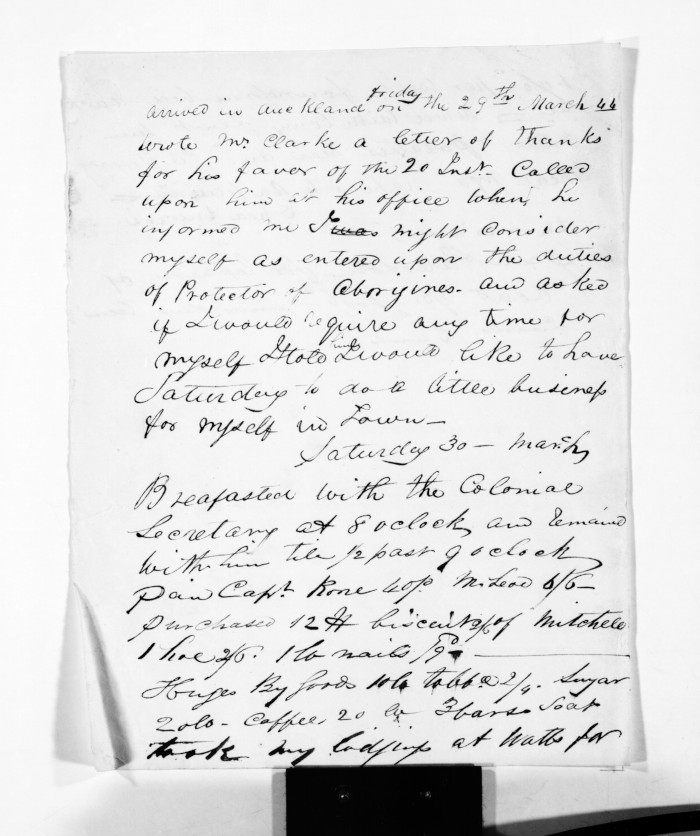 arrived in Auckland on friday the 29th March 44
wrote Mr Clarke a letter of thanks
for his favor of the 20 Inst. Called
upon him at his office when he
informed me I was might consider
myself as entered upon the duties
of Protector of Aborigines. and asked
if I would require any time for
myself I told him I would like to have
Saturday to do a little business
for myself in Town —
Saturday 30 — March
Breafasted with the Colonial
Secretary at 8 oclock, and remaind
with him till 1/2 past 9 oclock
Paid Capt. Rone 40/. McLeod 6/6 —
purchased 12 lb biscuit 2/6 of Mitchell
1 hoe 2/6. 1 lb nails /9d
Huges By Goods 10 lb tobbco 2/4. Sugar
20 lb - Coffee, 20 lb 3 bars Soap
took my lodgings at Watts for